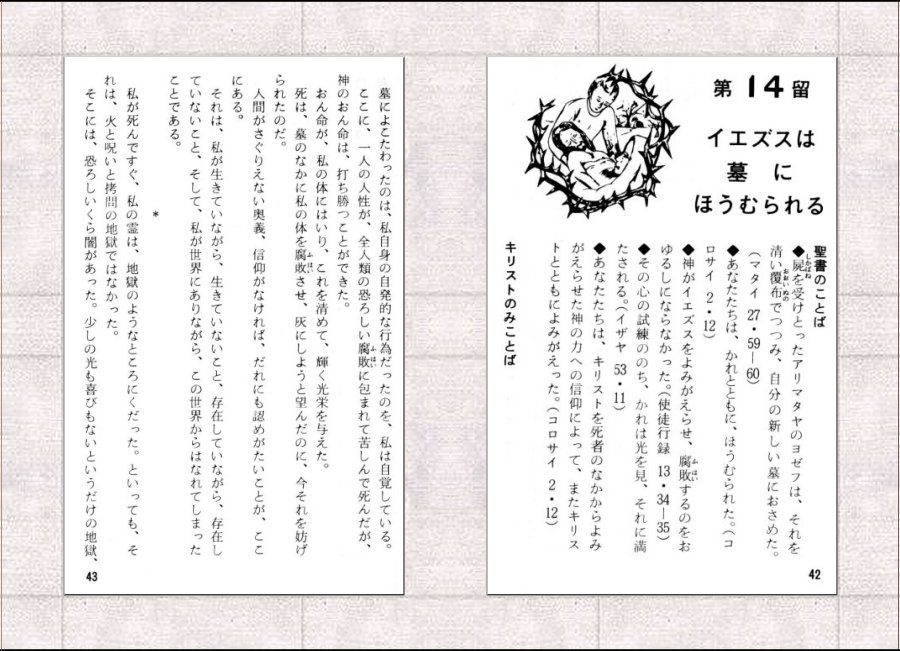 第14留
イエズスは
墓に
ほうむられる
聖書のことば
◆屍を受けとったアリマタヤのヨゼフは、それを
清い覆布でつつみ、自分の新しい墓におさめた。
(マタイ 27・59—60)
◆あなたたちは、かれとともに、ほうむられた。(コ
ロサイ 2・12)
◆神がイエズスをよみがえらせ、腐敗するのをお
ゆるしにならなかった。(使徒行録 13・34—35)
◆その心の試練ののち、かれは光を見、それに満
たされる。(イザヤ 53・11)
◆あなたたちは、キリストを死者のなかからよみ
がえらせた神の力への信仰によって、またキリス
トとともによみがえった。(コロサイ 2・12)
キリストのみことば
42
墓によこたわったのは、私自身の自発的な行為だったのを、私は自覚している。
ここに、一人の人性が、全人類の恐ろしい腐敗に包まれて苦しんで死んだが、
神のおん命は、打ち勝つことができた。
おん命が、私の体にはいり、これを清めて、輝く光栄を与えた。
死は、墓のなかに私の体を腐敗させ、灰にしようと望んだのに、今それを妨げ
られたのだ。
人間がさぐりえない奥義、信仰がなければ、だれにも認めがたいことが、ここ
にある。
それは、私が生きていながら、生きていないこと、存在していながら、存在し
ていないこと、そして、私が世界にありながら、この世界からはなれてしまった
ことである。
*
私が死んですぐ、私の霊は、地獄のようなところにくだった。といっても、そ
れは、火と呪いと拷問の地獄ではなかった。
そこには、恐ろしいくら闇があった。少しの光も喜びもないというだけの地獄、
43